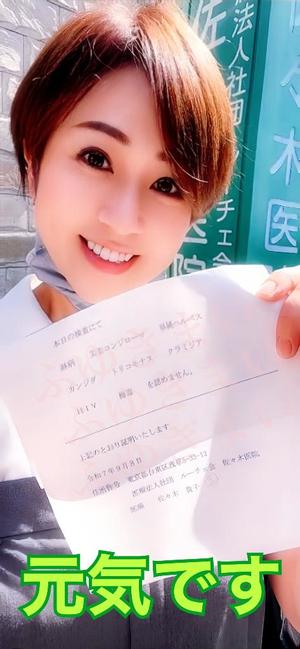 法人社団
佐々木医
ーチェ会
医院
本日の検査にて
淋病 尖圭コンジローマ 単純ヘルペス
カンジダ トリコモナス クラミジア
HIV 梅毒 を認めません。
上記のとおり証明いたします
令和7年9月8日
住所物号 東京都台東区浅草5-33-12
医療法人社団 ルーチェ会 佐々木医院
医師 佐々木 貴子
元気です